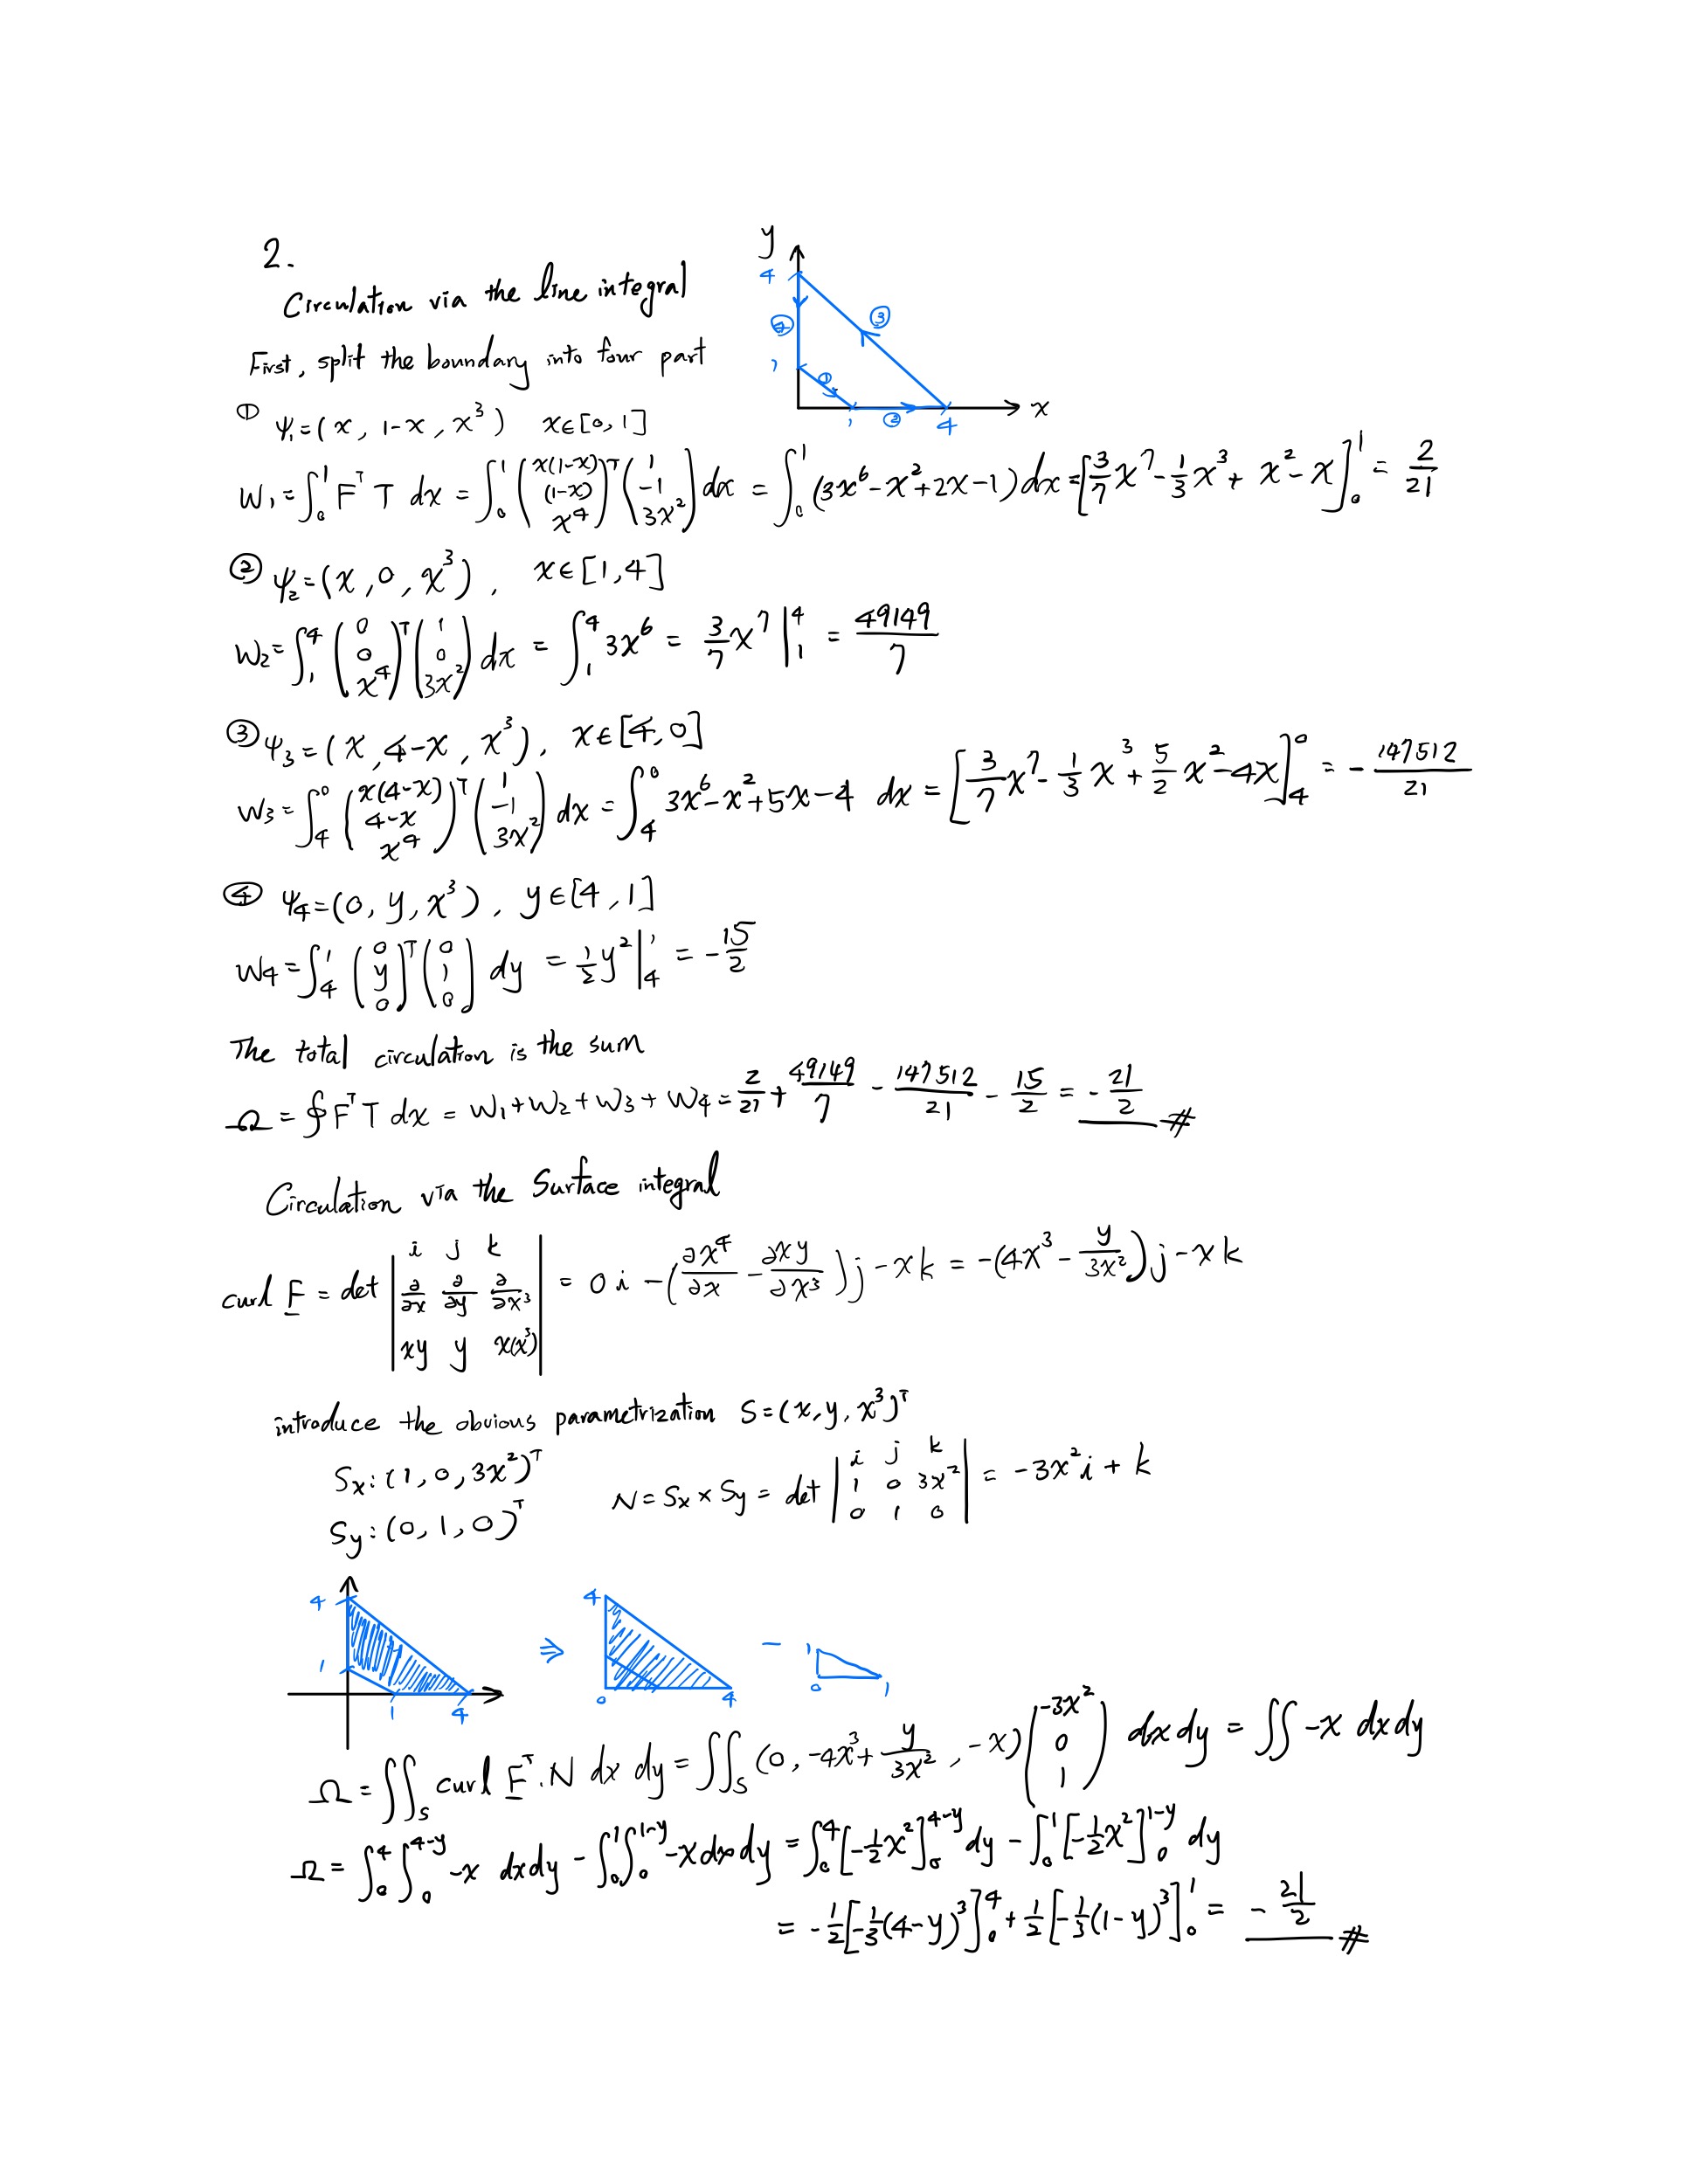 2.
Circulation via the line integral
First, split the boundary into four part
y
4
1
1
4
x
①
②
③
④
① ψ₁=(x, 1-x, x³) x∈[0,1]
W₁=∫₀¹ FᵀT dx = ∫₀¹ (x(1-x), (1-x), x⁴)ᵀ(1, -1, 3x²) dx = ∫₀¹ (3x⁶-x²+2x-1) dx = [3/7 x⁷ - 1/3 x³ + x² - x]₀¹ = 2/21
② ψ₂=(x, 0, x³), x∈[1,4]
W₂=∫₁⁴ (0, 0, x⁴)ᵀ(1, 0, 3x²) dx = ∫₁⁴ 3x⁶ = 3/7 x⁷ |₁⁴ = 49149/7
③ ψ₃=(x, 4-x, x³), x∈[4,0]
W₃=∫₄⁰ (x(4-x), 4-x, x⁴)ᵀ(1, -1, 3x²) dx = ∫₄⁰ 3x⁶-x²+5x-4 dx = [3/7 x⁷ - 1/3 x³ + 5/2 x² - 4x]₄⁰ = - 147512/21
④ ψ₄=(0, y, x³), y∈[4,1]
W₄=∫₄¹ (0, y, 0)ᵀ(0, 1, 0) dy = 1/2 y² |₄¹ = - 15/2
The total circulation is the sum
Ω = ∮ FᵀT dx = W₁+W₂+W₃+W₄ = 2/21 + 49149/7 - 147512/21 - 15/2 = - 21/2 #
Circulation via the Surface integral
curl F = det |i j k; ∂/∂x ∂/∂y ∂/∂x³; xy y x(x³)| = 0i - (∂x⁴/∂x - ∂xy/∂x³)j - xk = -(4x³ - y/3x²)j - xk
introduce the obvious parametrization S=(x,y,x³)ᵀ
Sx: (1, 0, 3x²)ᵀ
Sy: (0, 1, 0)ᵀ
N = Sx × Sy = det |i j k; 1 0 3x²; 0 1 0| = -3x²i + k
4
1
1
4
⇒
4
0
4
-
1
0
1
Ω = ∬ₛ curl Fᵀ·N dx dy = ∬ₛ (0, -4x³ + y/3x², -x)(-3x², 0, 1) dxdy = ∬ -x dxdy
Ω = ∫₀⁴∫₀⁴⁻ʸ -x dxdy - ∫₀¹∫₀¹⁻ʸ -x dxdy = ∫₀⁴[-1/2 x²]₀⁴⁻ʸ dy - ∫₀¹[-1/2 x²]₀¹⁻ʸ dy
= -1/2[-1/3(4-y)³]₀⁴ + 1/2[-1/3(1-y)³]₀¹ = - 21/2 #